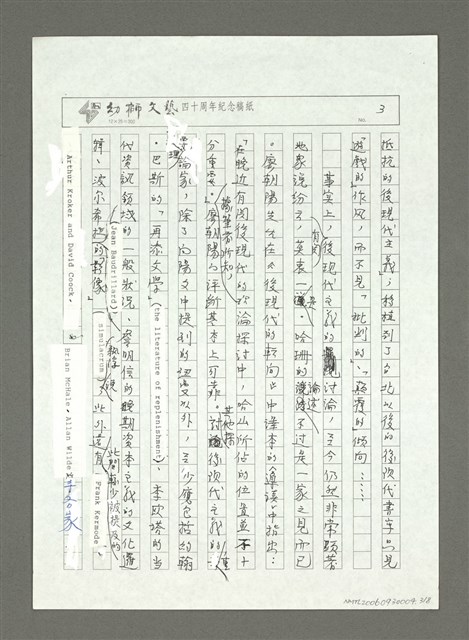 幼獅文藝 四十周年紀念稿紙
10×20=200
NO. 3
抵抗的後現代主義，移植到了台北以後的後現代書寫只見
「遊戲的」作風，而不見「批判的」、「顛覆的」傾向……
事實上，後現代主義的討論，至今仍是非常顯著
地眾說紛云，莫衷一是。哈珊的論述不過是一家之見而已
有關
。廖朝陽先生在《後現代的轉向》中譯本的《導讀》中指出：
「在晚近有關後現代的理論探討中，哈山所佔的位置並不十
據筆者所知，
分重要。」廖朝陽的評斷基本上可靠。討論後現代主義的重
其他
要理論家，除了向陽文中提到的以外，至少應包括約翰
·巴斯的「再添文學」(the literature of replenishment)、李歐塔的當
代資訊領域的一般狀況、詹明信的晚期資本主義的文化邏
輯、波尔希亞的「擬像」(simulacrum)
(Jean Baudrillard)
，此外還有
此間較少被提及的
Frank Kermaude、
Arthur Kroker and David Coock、
Brian McHale、Allan Wilde
等多家
NMTL20060930004 3/8